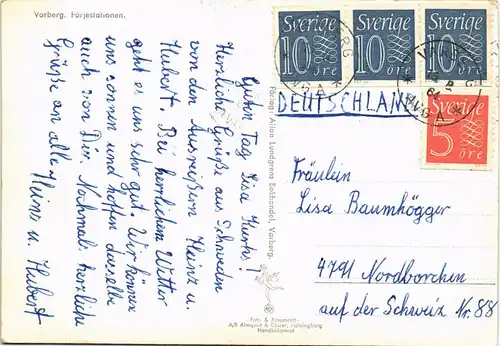 Varberg. Färjestationen.
Guten Tag Lisa Kurts!
Herzliche Grüße aus Schweden
von den Ausreißern Heinz u.
Hubert. Bei herrlichem Wetter
geht es uns sehr gut. Wir können
uns sonnen und hoffen dasselbe
auch von Dir. Nochmal herzliche
Grüße an alle Heinz u. Hubert
Förlag: Allan Lundgrens Bokhandel, Varberg.
Foto & Ensamrätt:
A/B Almquist & Cöster, Hälsingborg
Handkolorerat
Sverige
10 öre
Sverige
10 öre
Sverige
10 öre
Sverige
5 öre
DEUTSCHLAND
Fräulein
Lisa Baumhögger
4791 Nordborchen
auf der Schweiz Nr. 88